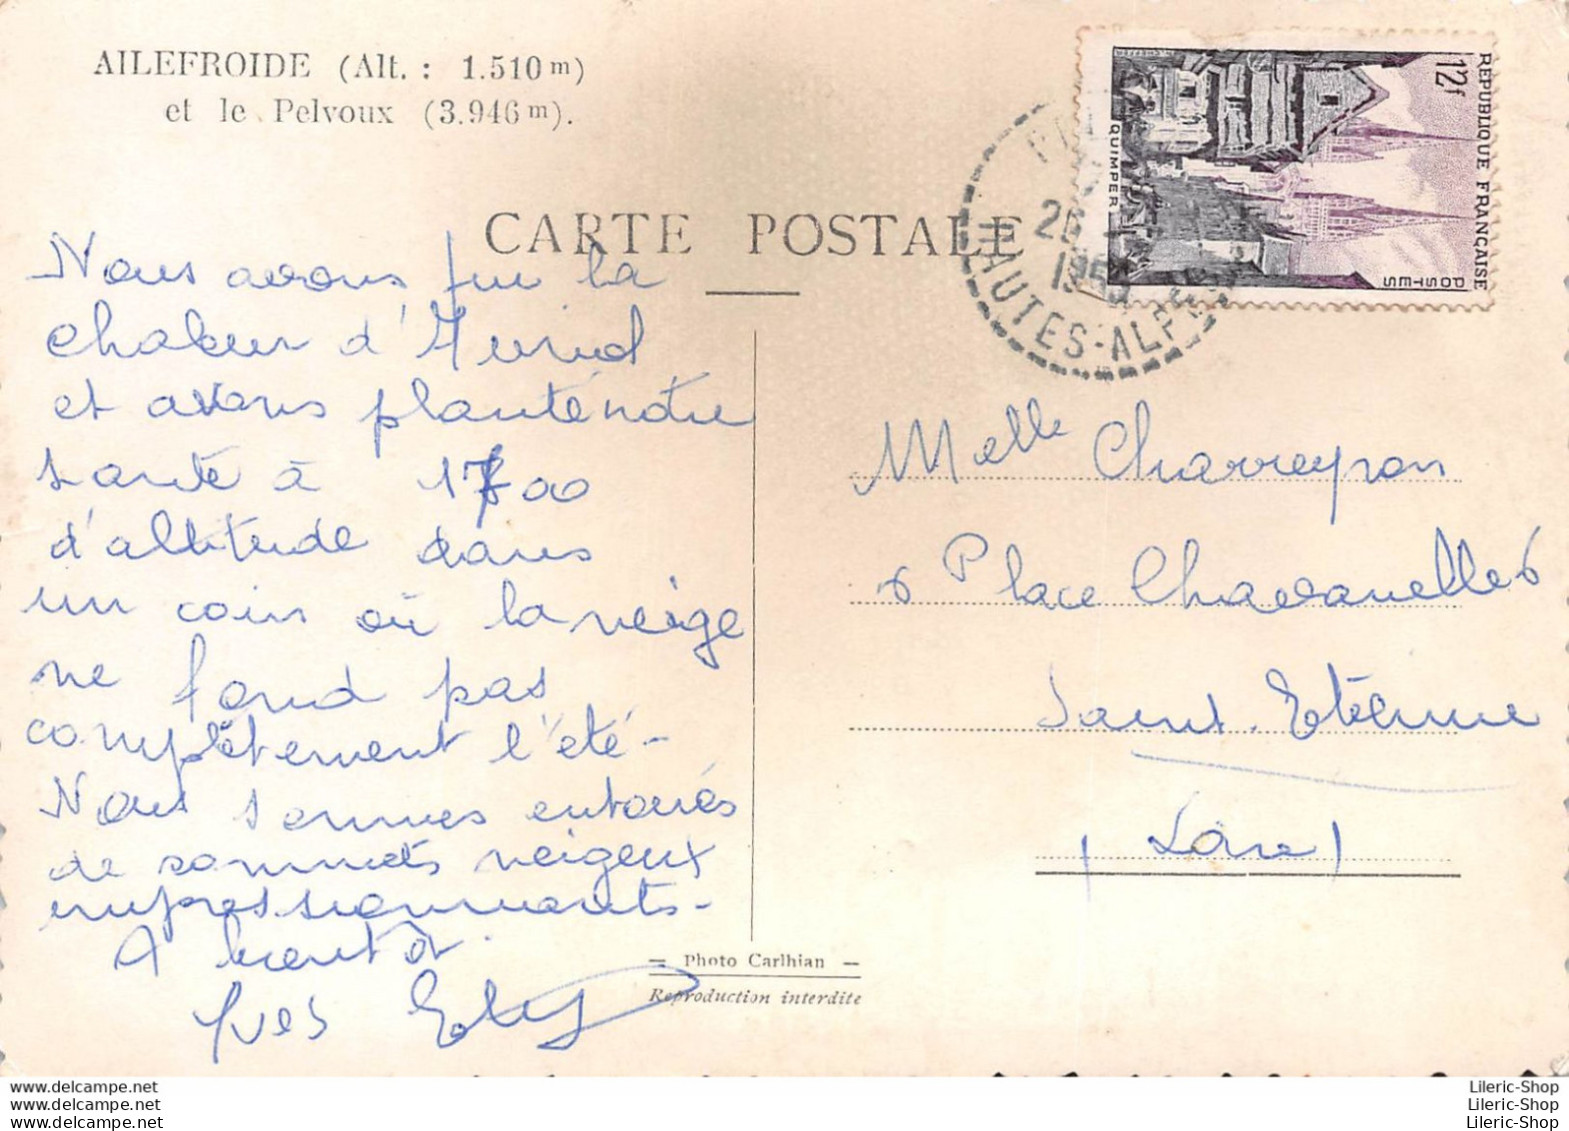 AILEFROIDE (Alt. : 1.510 m)
et le Pelvoux (3.946 m).
CARTE POSTALE
REPUBLIQUE FRANÇAISE
12f
POSTES
QUIMPER
25
195
HAUTES-ALPES
Nous avons fui la
chaleur d'
et avons planté notre
santé à 1700
d'altitude dans
un coin où la neige
ne fond pas
complètement l'été -
Nous sommes entourés
de sommets neigeux
impressionnants -
A bientôt
Yves
Melle Charreyron
6 Place Chavanelle
Saint-Etienne
(Loire)
— Photo Carlhian —
Reproduction interdite
www.delcampe.net
www.delcampe.net
www.delcampe.net
Lileric-Shop
Lileric-Shop
Lileric-Shop